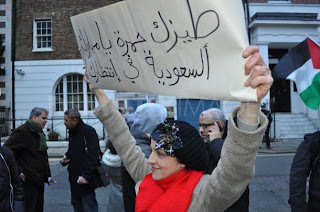 طيزك حمرة يا مبارك
السعودية في إنتظارك